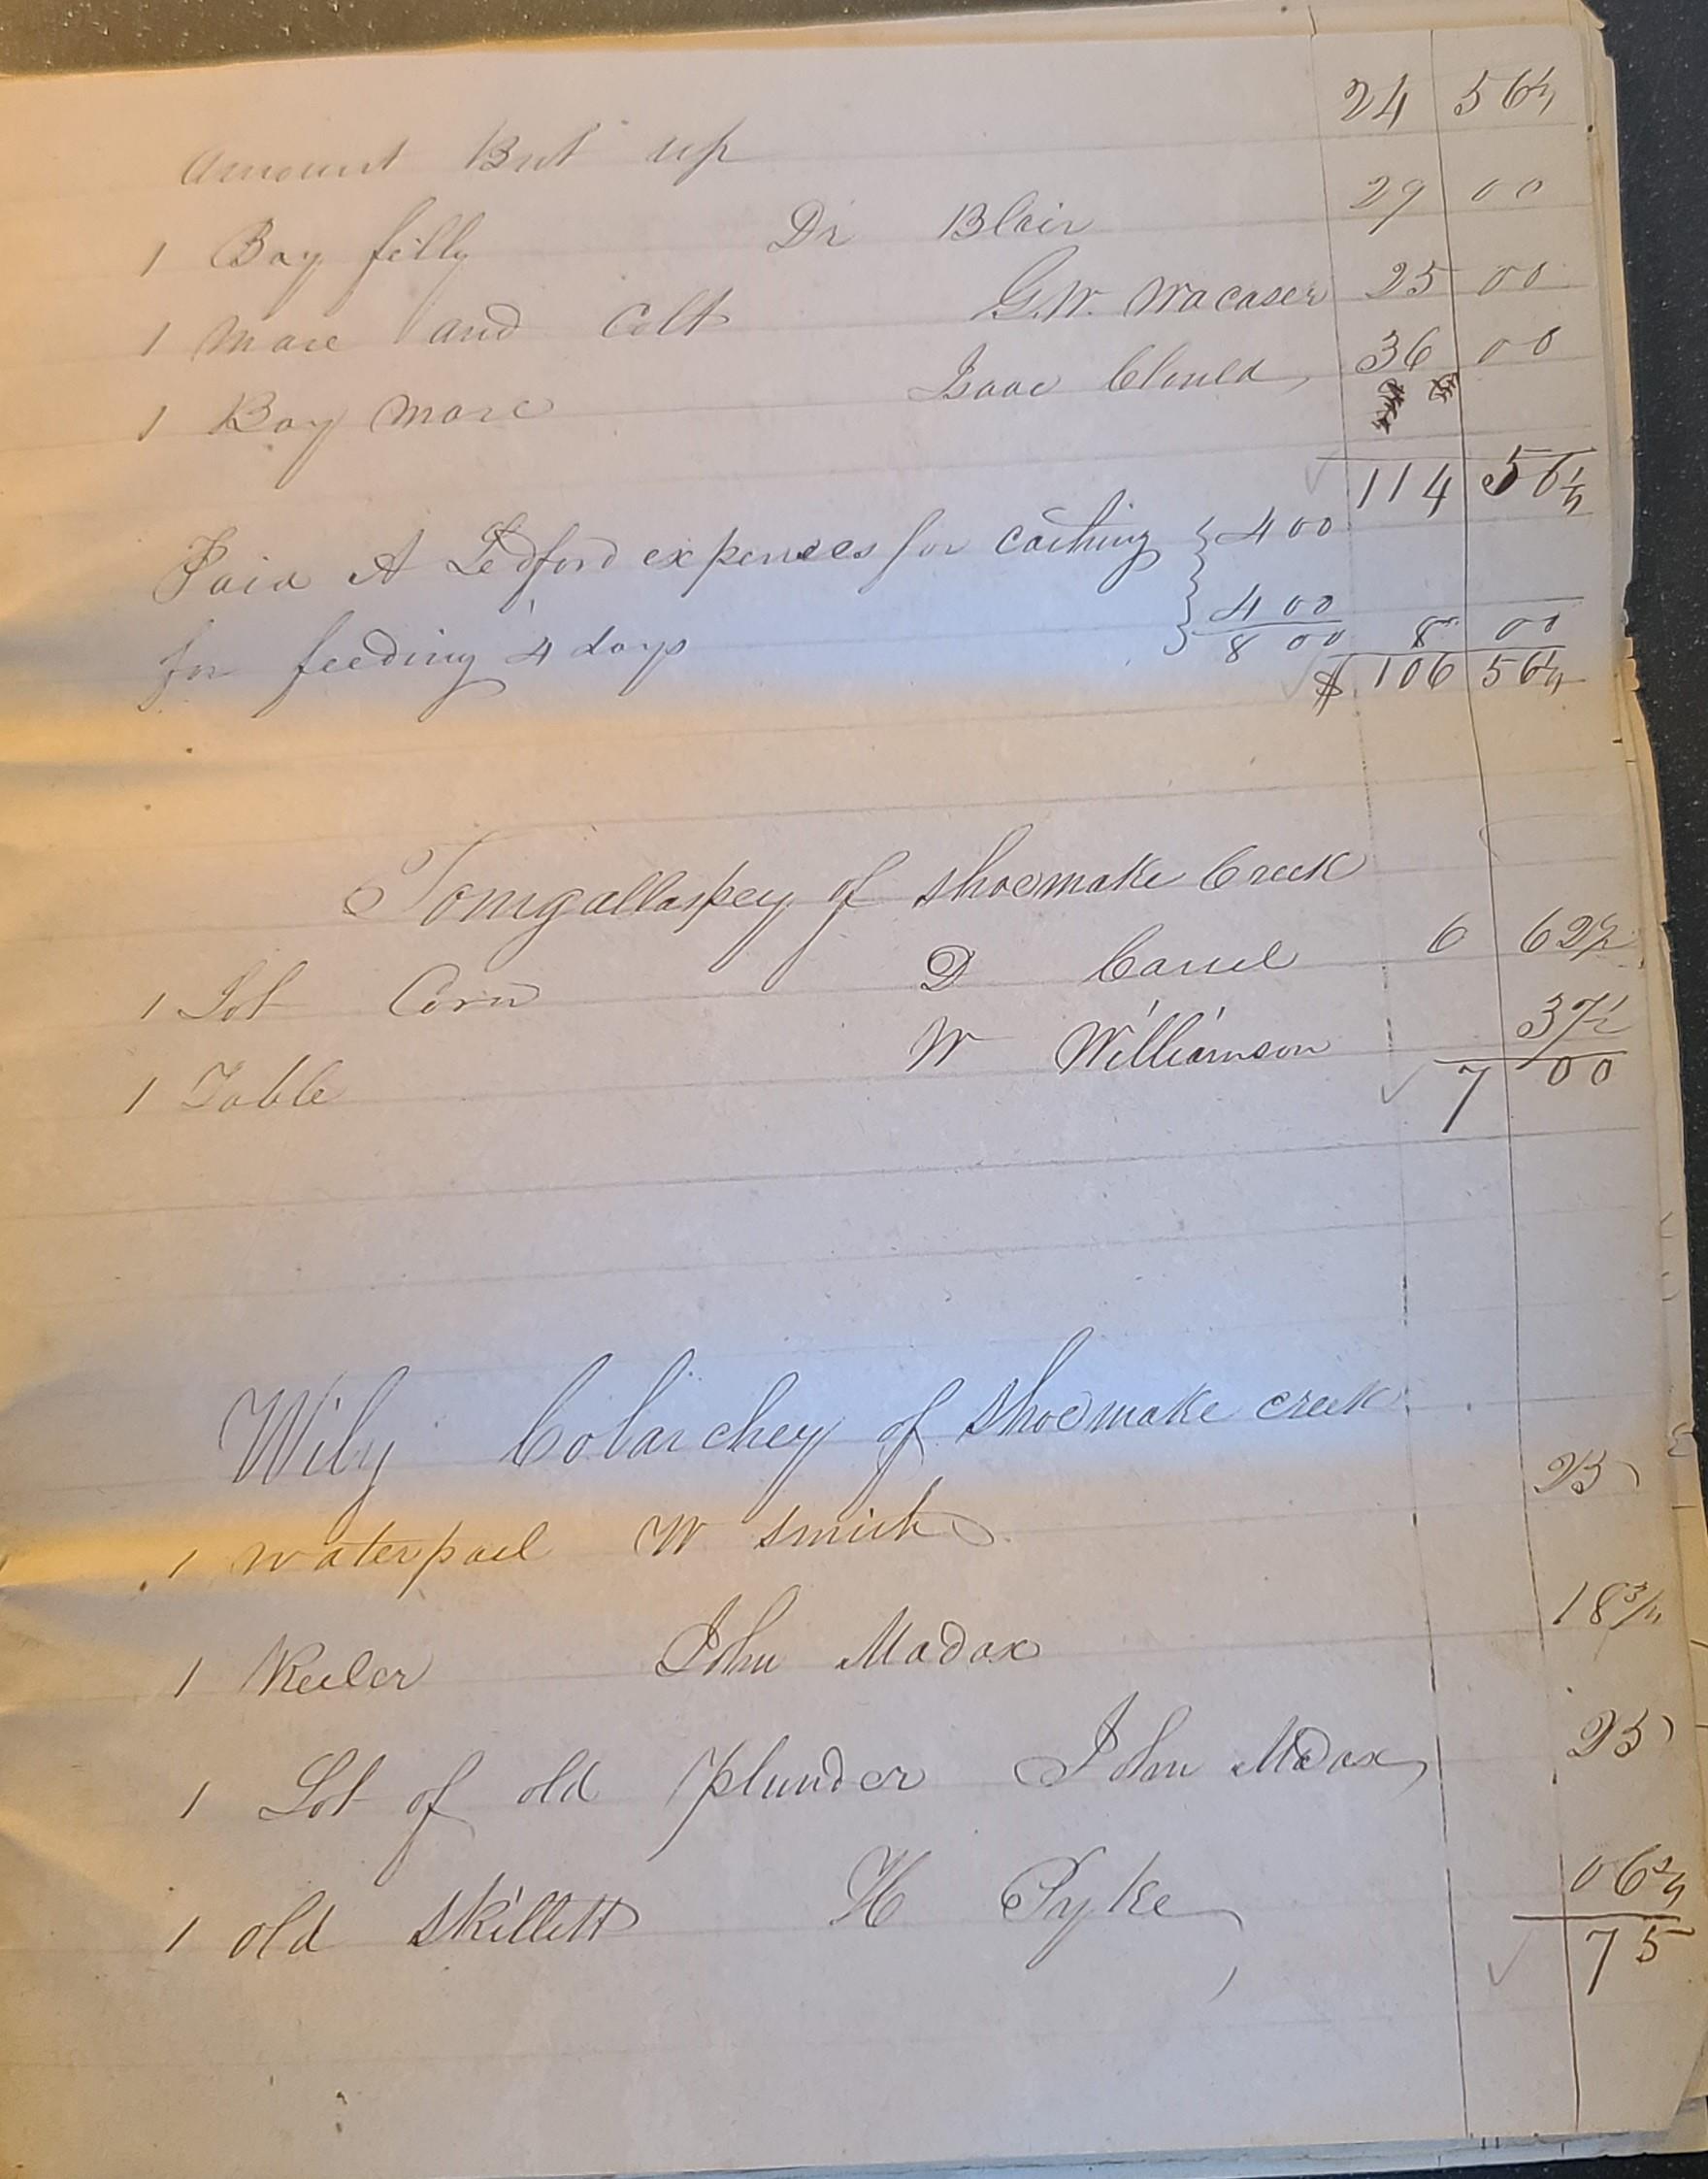 Amount Brt up 24 56¼
1 Bay filly Dr Blair 29 00
1 Mare and Colt G.W. Wacaser 25 00
1 Bay Mare Isaac Clould 36 00
114 56¼
Paid A Ledford expenses for caching 4 00
for feeding 4 days 4 00
8 00 8 00
$ 106 56¼
Tomgallaspey of Shoemake Creek
1 Lot Corn D Carrel 6 62½
1 Table W Williamson 37½
7 00
Wily Colarchey of Shoemake creek
1 waterpail W Smith 25
1 Keeler John Madox 18¾
1 Lot of old plunder John Madox 25
1 old Skillett H Pyke 06¼
75